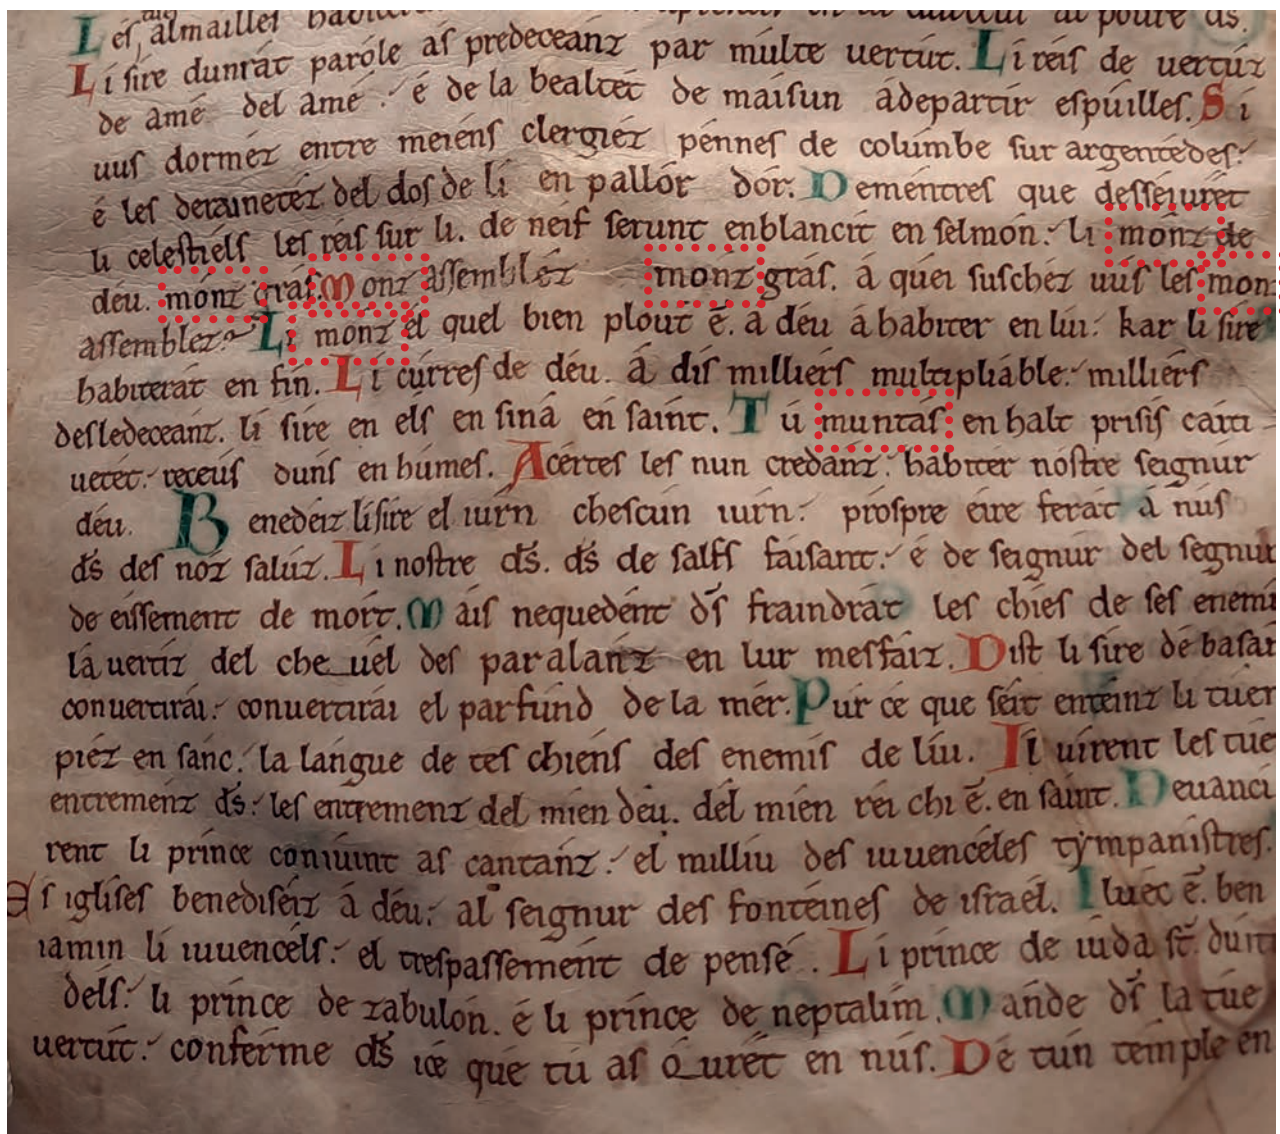 Les almailles
Li sire dunrát paróle as predeceanz par múlte uertút. Li reis de uertúz
de amé del amé : é de la bealtét de maisun ádepartír espúilles. Si
uus dormez entre meiens clergiéz pénnes de colúmbe sur argentedes:
é les derainetéz del dos de lí en pallór dór. Deméntres que desséiurét
li celestiéls les réis sur li. de neif serunt enblancít en selmón: li mónz de
déu. mónz grás. Monz assembléz monz grás. á quei suschéz uús les mon
assemblez Li mónz él quel bien plout ē. a déu á habiter en lúi: kar li sire
habiterát en fin. Li cúrres de déu. á dis milliérs multipliáble: milliérs
desledeceanz. li sire en els en siná en saint. Tú muntás en halt prisís caiti
uetét: receús duns en húmes. Acértes les nun credánz: habiter nóstre seignur
déu. Benedeiz li sire el iúrn chescún iurn: prospre éire ferát á nús
ds des nóz salúz. Li nostre ds. ds de salfs faisant: é de seignur del segnur
de eissement de mort. Máis nequedént ds fraindrát les chíes de ses enemi
lá uertíz del cheuél des paralánz en lur mesfaiz. Dist li sire dé basán
conuertirái: conuertirái el parfúnd de la mér. Pur cé que séit enteinz li tuen
piéz en sanc: la lángue de tes chiens des enemís de lúi. Il uírent les tue
entremenz ds: les entremenz del mien déu. dél mién réi chi ē. en saint. Deuanci
rent li prince coniúint as cantánz: el millíu des iuuencéles tympanistres.
Es iglíses benediséiz á déu: al seignur des fontéines de israél. Iluéc ē. ben
iamin li iuuencéls: el trespassemént de pensé. Li prínce de iúda st. dúit
dels: li prínce de zabulón. é li prínce de neptalím. Mánde ds la túe
uertút: conférme ds icé qué tú ás óurét en nús. Dé tún témple en